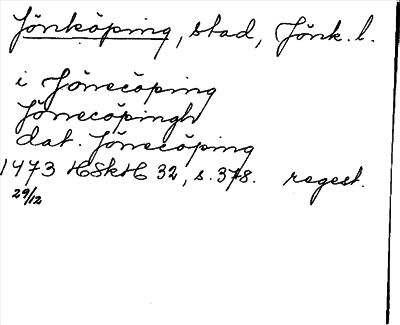 Jönköping, stad, Jönk. l.
i Jönecöping
Jönecöpingh
dat. Jönecöping
1473 HSkH 32, s. 378. regest.
29/12